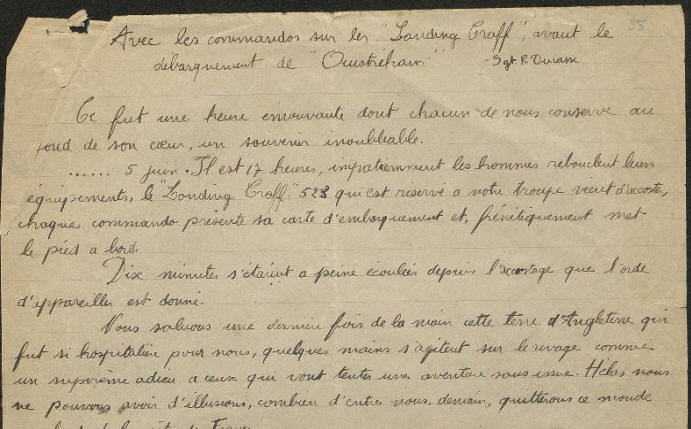 35
Avec les commandos sur les "Landing Craff", avant le
débarquement de "Ouistréham" - Sgt. R.
Ce fut une heure émouvante dont chacun de nous conserve au
fond de son cœur, un souvenir inoubliable.
...... 5 juin. Il est 17 heures, impatiemment les hommes rebouclent leurs
équipements, le "Landing Craff" 523 qui est réservé a notre troupe vient d'accoster,
chaque commando présente sa carte d'embarquement et, frénétiquement met
le pied a bord.
Dix minutes s'étaient a peine écoulées depuis l'accostage que l'orde
d'appareiller est donné.
Nous saluons une dernière fois de la main cette terre d'Angleterre qui
fut si hospitalière pour nous, quelques mains s'agitent sur le rivage comme
un suprême adieu a ceux qui vont tenter une aventure sans issue. Hélas nous
ne pouvons avoir d'illusions, combien d'entre nous, demain, quitterons ce monde